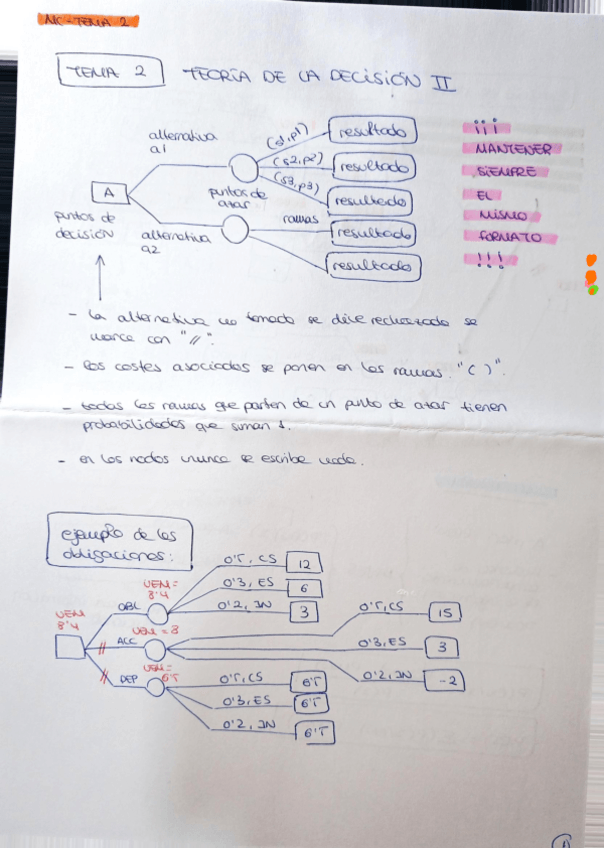 MC-TEMA 2
TEMA 2 TEORÍA DE LA DECISIÓN II
alternativa
a1
(s1, p1)
(s2, p2)
(s3, p3)
resultado
resultado
resultado
resultado
resultado
A
puntos de
decisión
puntos de
azar
ramas
alternativa
a2
¡¡¡
MANTENER
SIEMPRE
EL
MISMO
FORMATO
!!!
- la alternativa no tomada se dice rechazada se
marca con "//".
- los costes asociados se ponen en las ramas "( )".
- todas las ramas que parten de un punto de azar tienen
probabilidades que suman 1.
- en los nodos nunca se escribe nada.
ejemplo de las
obligaciones:
VEM
8'4
OBL
VEM=
8'4
0'5, CS 12
0'3, ES 6
0'2, IN 3
ACC
VEM = 8
0'5, CS 15
0'3, ES 3
0'2, IN -2
DEP
VEM=
6'5
0'5, CS 6'5
0'3, ES 6'5
0'2, IN 6'5
1